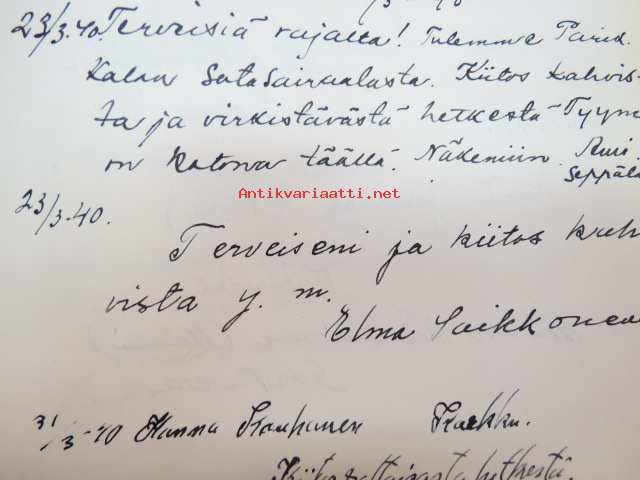 23/3.40. Terveisiä rajalta! Tulemme Parik
kalan Sotasairaalasta. Kiitos kahvis-
ta ja virkistävästä hetkestä Tyyne
on kotona täällä. Näkemiin.
Seppälä
Antikvariaatti.net
23/3-40.
Terveiseni ja kiitos kah
vista y. m.
Elma Saikkonen
31/3-40 Hannu
hetkestä.